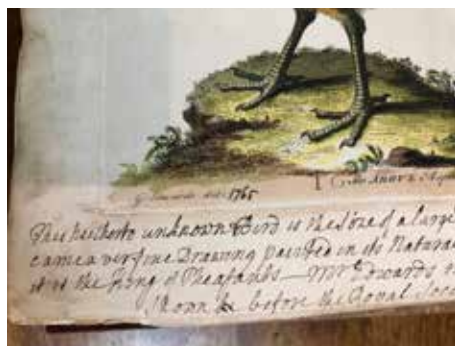 G Edwards del: 1765
This hitherto unknown Bird is the Size of a large
came a very fine Drawing painted in its Natura
it is the King of Pheasants — Mr Edwards
before the Royal Soc